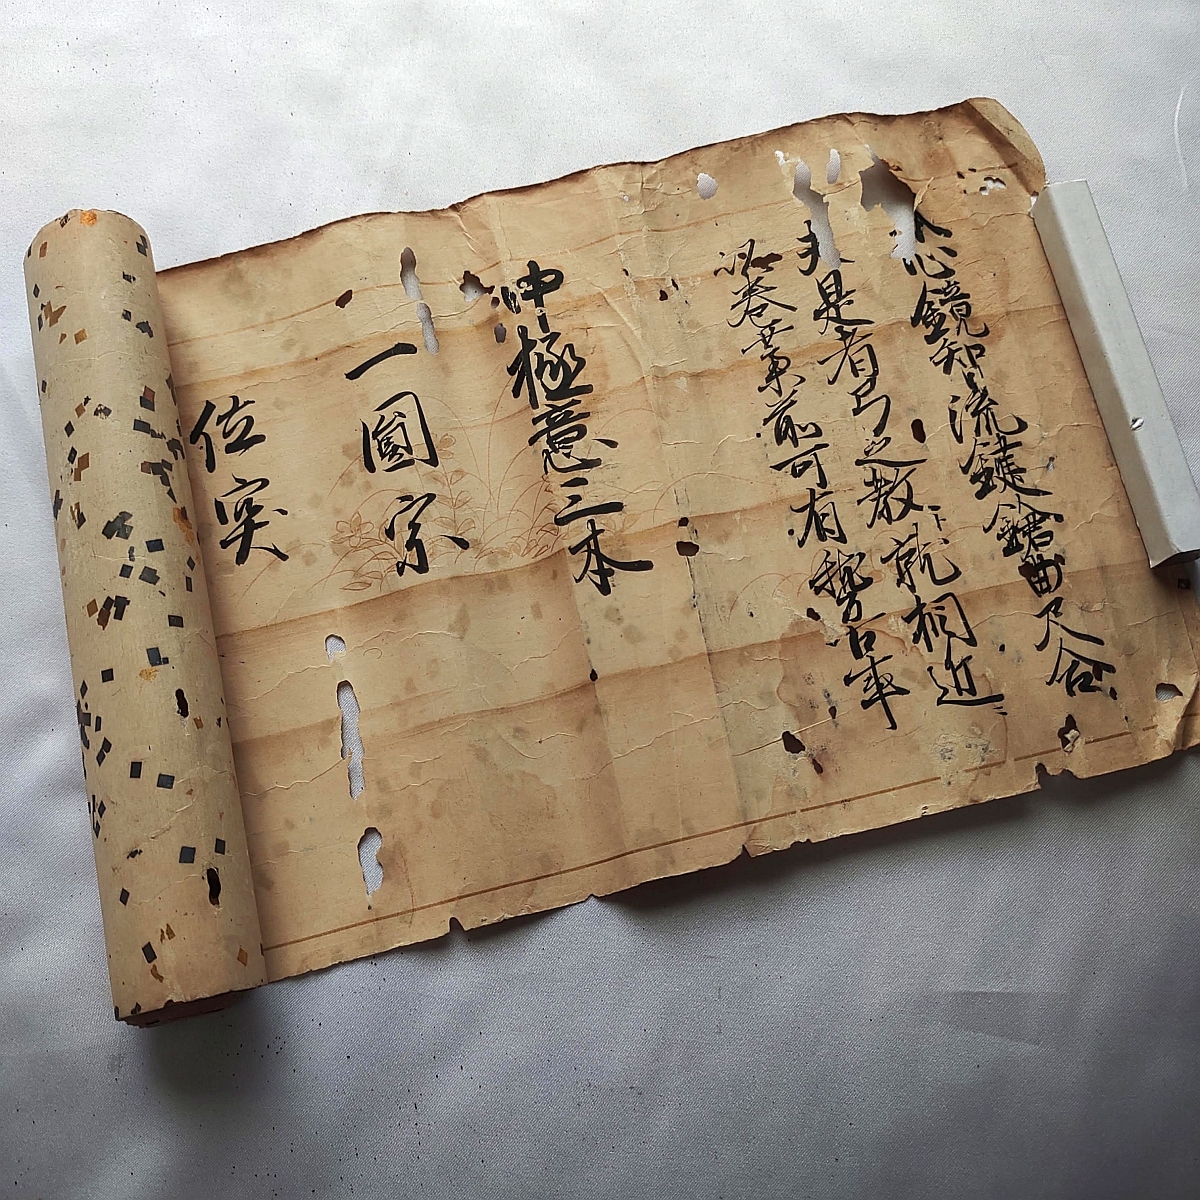 心鏡知流鑓鎗曲尺合
夫是者弓之教就相近
此巻業前可有稽古事
仲極意三本
一圓宗
位突